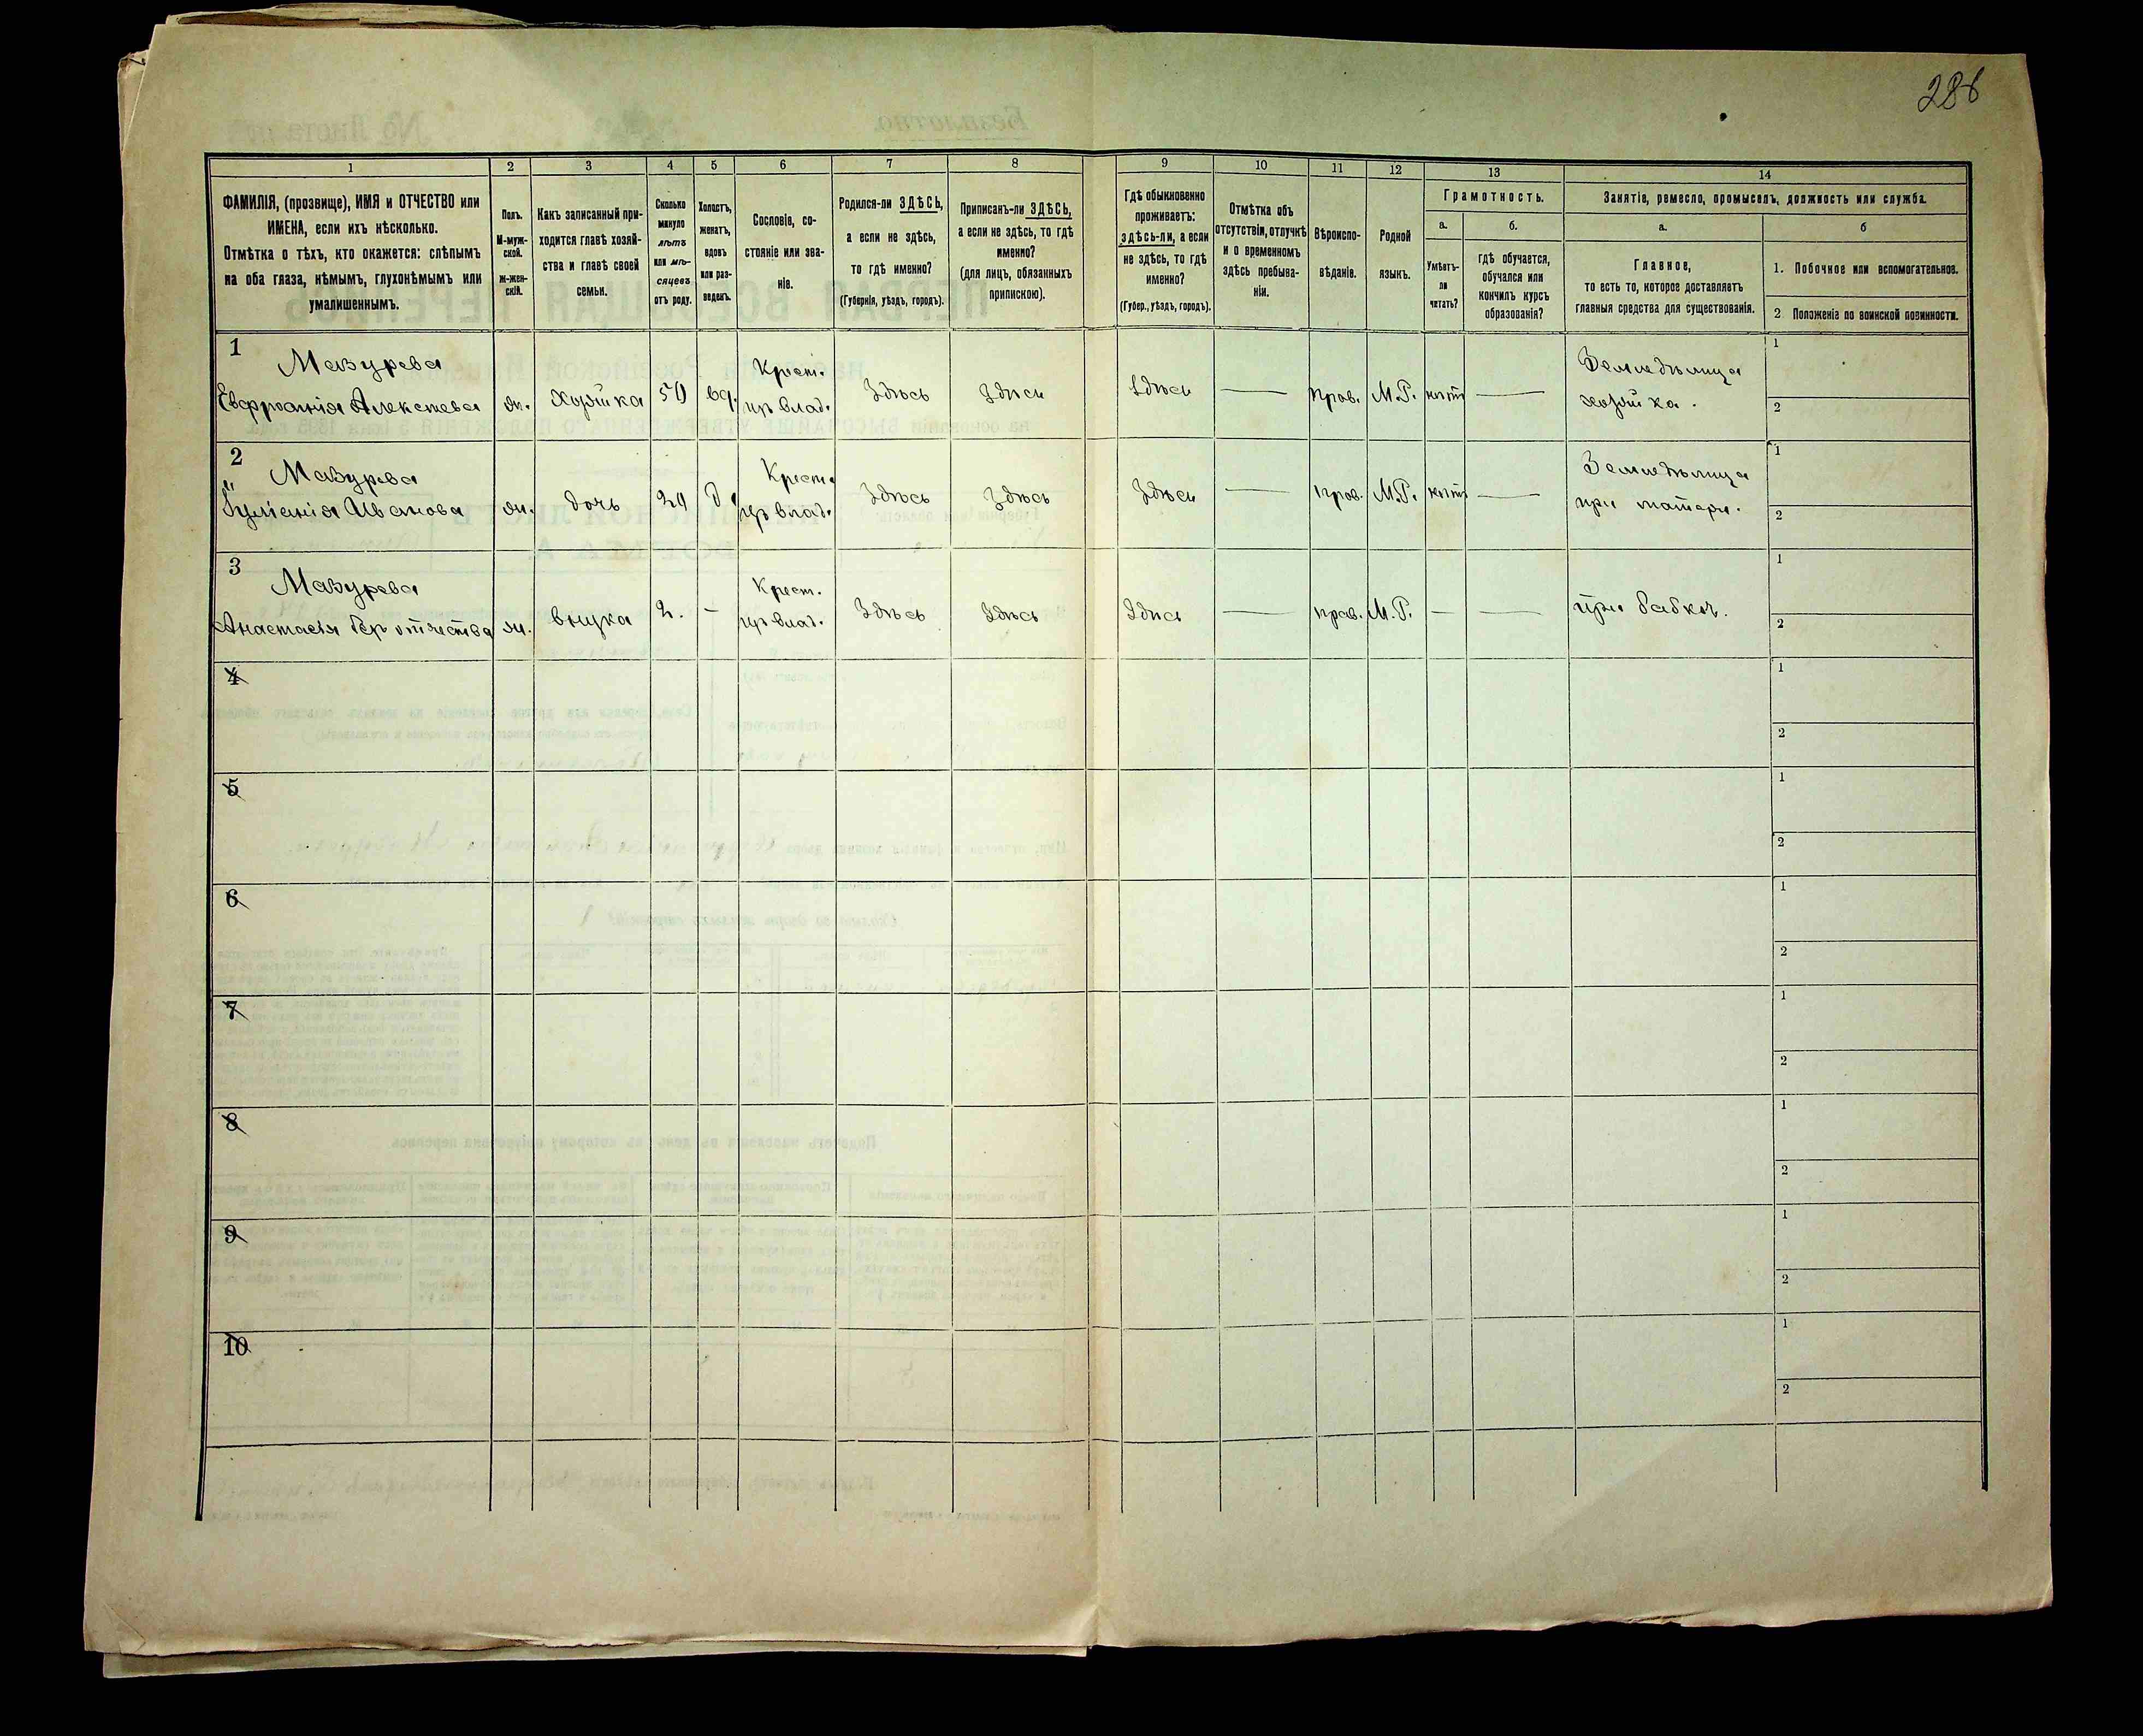 286
1
2
3
4
5
6
7
8
9
10
11
12
13
14
ФАМИЛІЯ, (прозвище), ИМЯ и ОТЧЕСТВО или
ИМЕНА, если ихъ нѣсколько.
Отмѣтка о тѣхъ, кто окажется: слѣпымъ
на оба глаза, нѣмымъ, глухонѣмымъ или
умалишеннымъ.
Полъ.
М-муж-
ской.
ж-жен-
скій.
Какъ записанный при-
ходится главѣ хозяй-
ства и главѣ своей
семьи.
Сколько
минуло
лѣтъ
или мѣ-
сяцевъ
отъ роду.
Холостъ,
женатъ,
вдовъ
или раз-
веденъ.
Сословіе, со-
стояніе или зва-
ніе.
Родился-ли ЗДѢСЬ,
а если не здѣсь,
то гдѣ именно?
(Губернія, уѣздъ, городъ).
Приписанъ-ли ЗДѢСЬ,
а если не здѣсь, то гдѣ
именно?
(для лицъ, обязанныхъ
припискою).
Гдѣ обыкновенно
проживаетъ:
здѣсь-ли, а если
не здѣсь, то гдѣ
именно?
(Губер., уѣздъ, городъ).
Отмѣтка объ
отсутствіи, отлучкѣ
и о временномъ
здѣсь пребыва-
ніи.
Вѣроиспо-
вѣданіе.
Родной
языкъ.
Грамотность.
а.
б.
Умѣетъ-
ли
читать?
гдѣ обучается,
обучался или
кончилъ курсъ
образованія?
Занятіе, ремесло, промыселъ, должность или служба.
а.
б
Главное,
то есть то, которое доставляетъ
главныя средства для существованія.
1. Побочное или вспомогательное.
2 Положеніе по воинской повинности.
1
Мазурева
Евфросинія Алексѣева
жн.
Хозяйка
50
вд.
Крест.
изъ влад.
Здѣсь
Здѣсь
Здѣсь
—
прав.
М.Р.
нѣтъ
—
Земледѣлица
хозяйка.
1
2
2
Мазурева
Іуліанія Иванова
жн.
дочь
20
д.
Крест.
изъ влад.
Здѣсь
Здѣсь
Здѣсь
—
прав.
М.Р.
нѣтъ
—
Земледѣлица
при матери.
1
2
3
Мазурева
Анастасія безъ отчества
жн.
внучка
2.
—
Крест.
изъ влад.
Здѣсь
Здѣсь
Здѣсь
—
прав.
М.Р.
—
—
при бабкѣ.
1
2
4
1
2
5
1
2
6
1
2
7
1
2
8
1
2
9
1
2
10
1
2